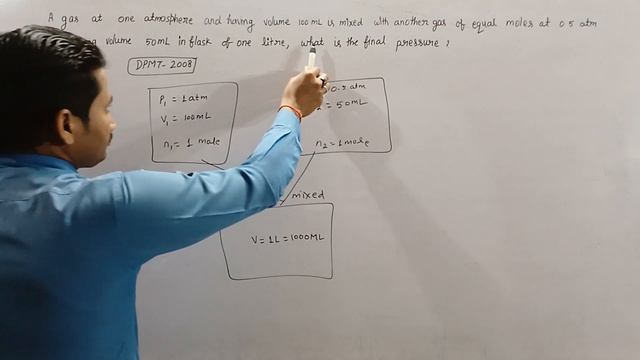 A gas at one atmosphere and having volume 100 mL is mixed with another gas of equal moles at 0.5 atm
volume 50mL in flask of one litre, what is the final pressure?
DPMT-2008
P₁ = 1atm
V₁ = 100mL
n₁ = 1 mole
atm
= 50mL
n₂ = 1mole
mixed
V = 1L = 1000ML